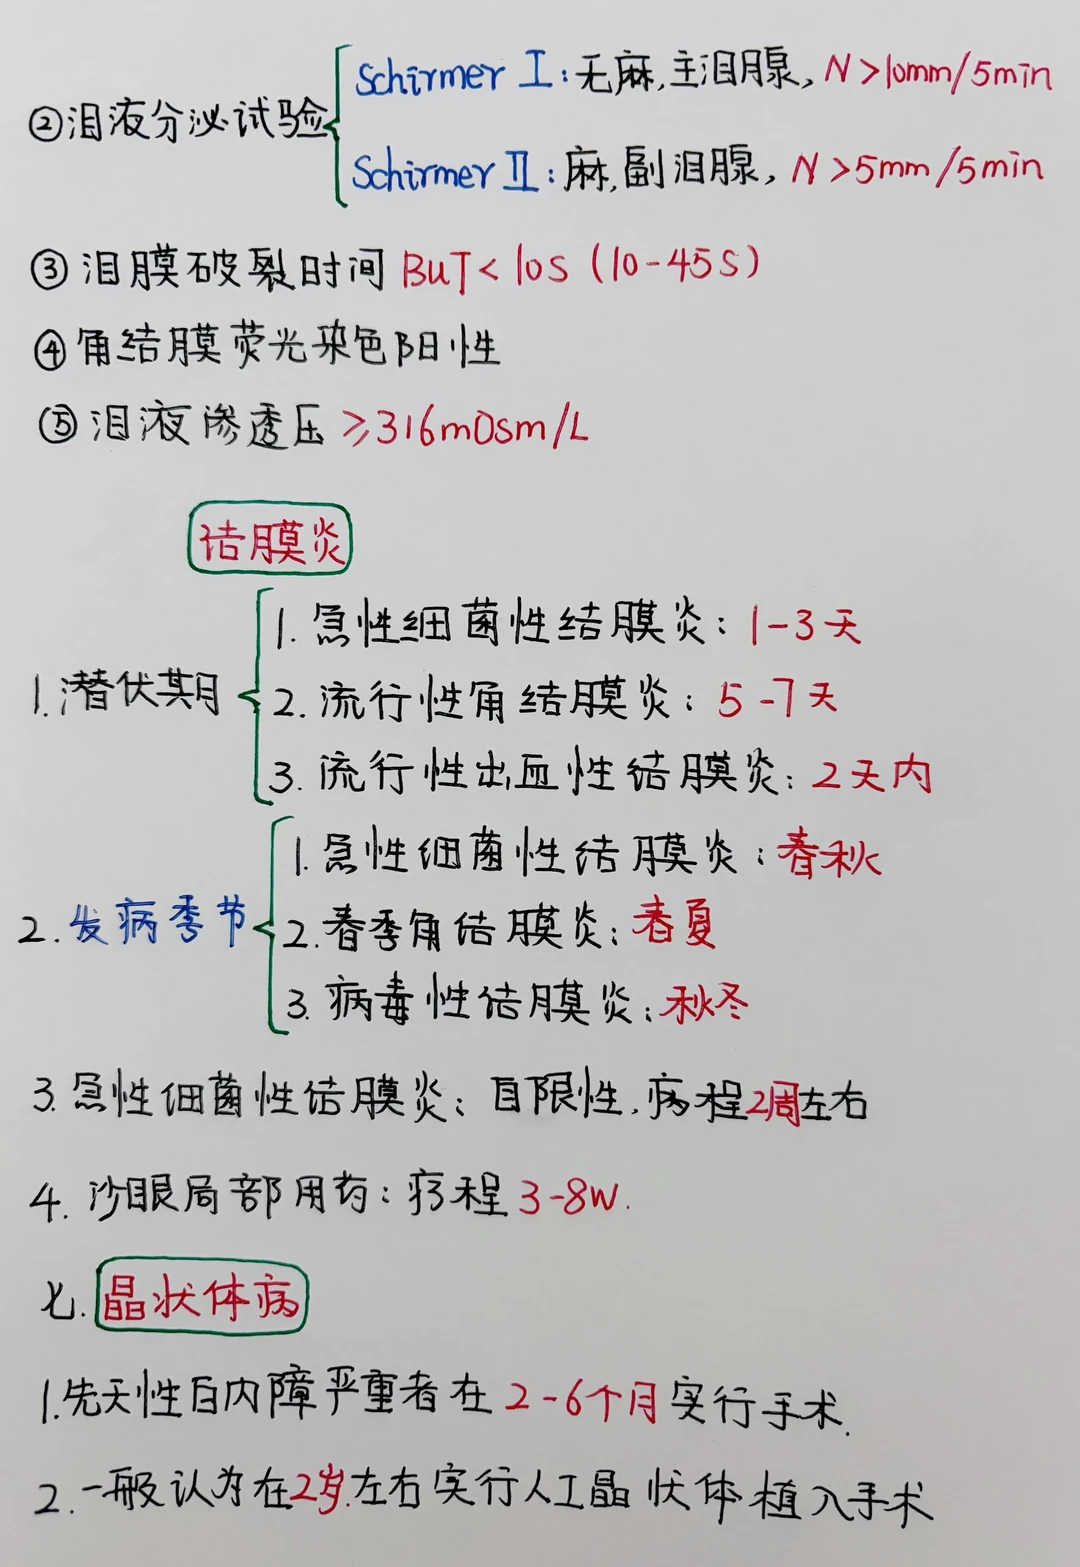 ②泪液分泌试验
Schirmer Ⅰ:无麻,主泪腺,N>10mm/5min
Schirmer Ⅱ:麻,副泪腺,N>5mm/5min
③泪膜破裂时间 BuT<10S(10-45S)
④角结膜荧光染色阳性
⑤泪液渗透压≥316mOsm/L
结膜炎
1.潜伏期
1.急性细菌性结膜炎:1-3天
2.流行性角结膜炎:5-7天
3.流行性出血性结膜炎:2天内
2.发病季节
1.急性细菌性结膜炎:春秋
2.春季角结膜炎:春夏
3.病毒性结膜炎:秋冬
3.急性细菌性结膜炎:自限性,病程2周左右
4.沙眼局部用药:疗程3-8W.
七.晶状体病
1.先天性白内障严重者在2-6个月实行手术.
2.一般认为在2岁左右实行人工晶状体植入手术